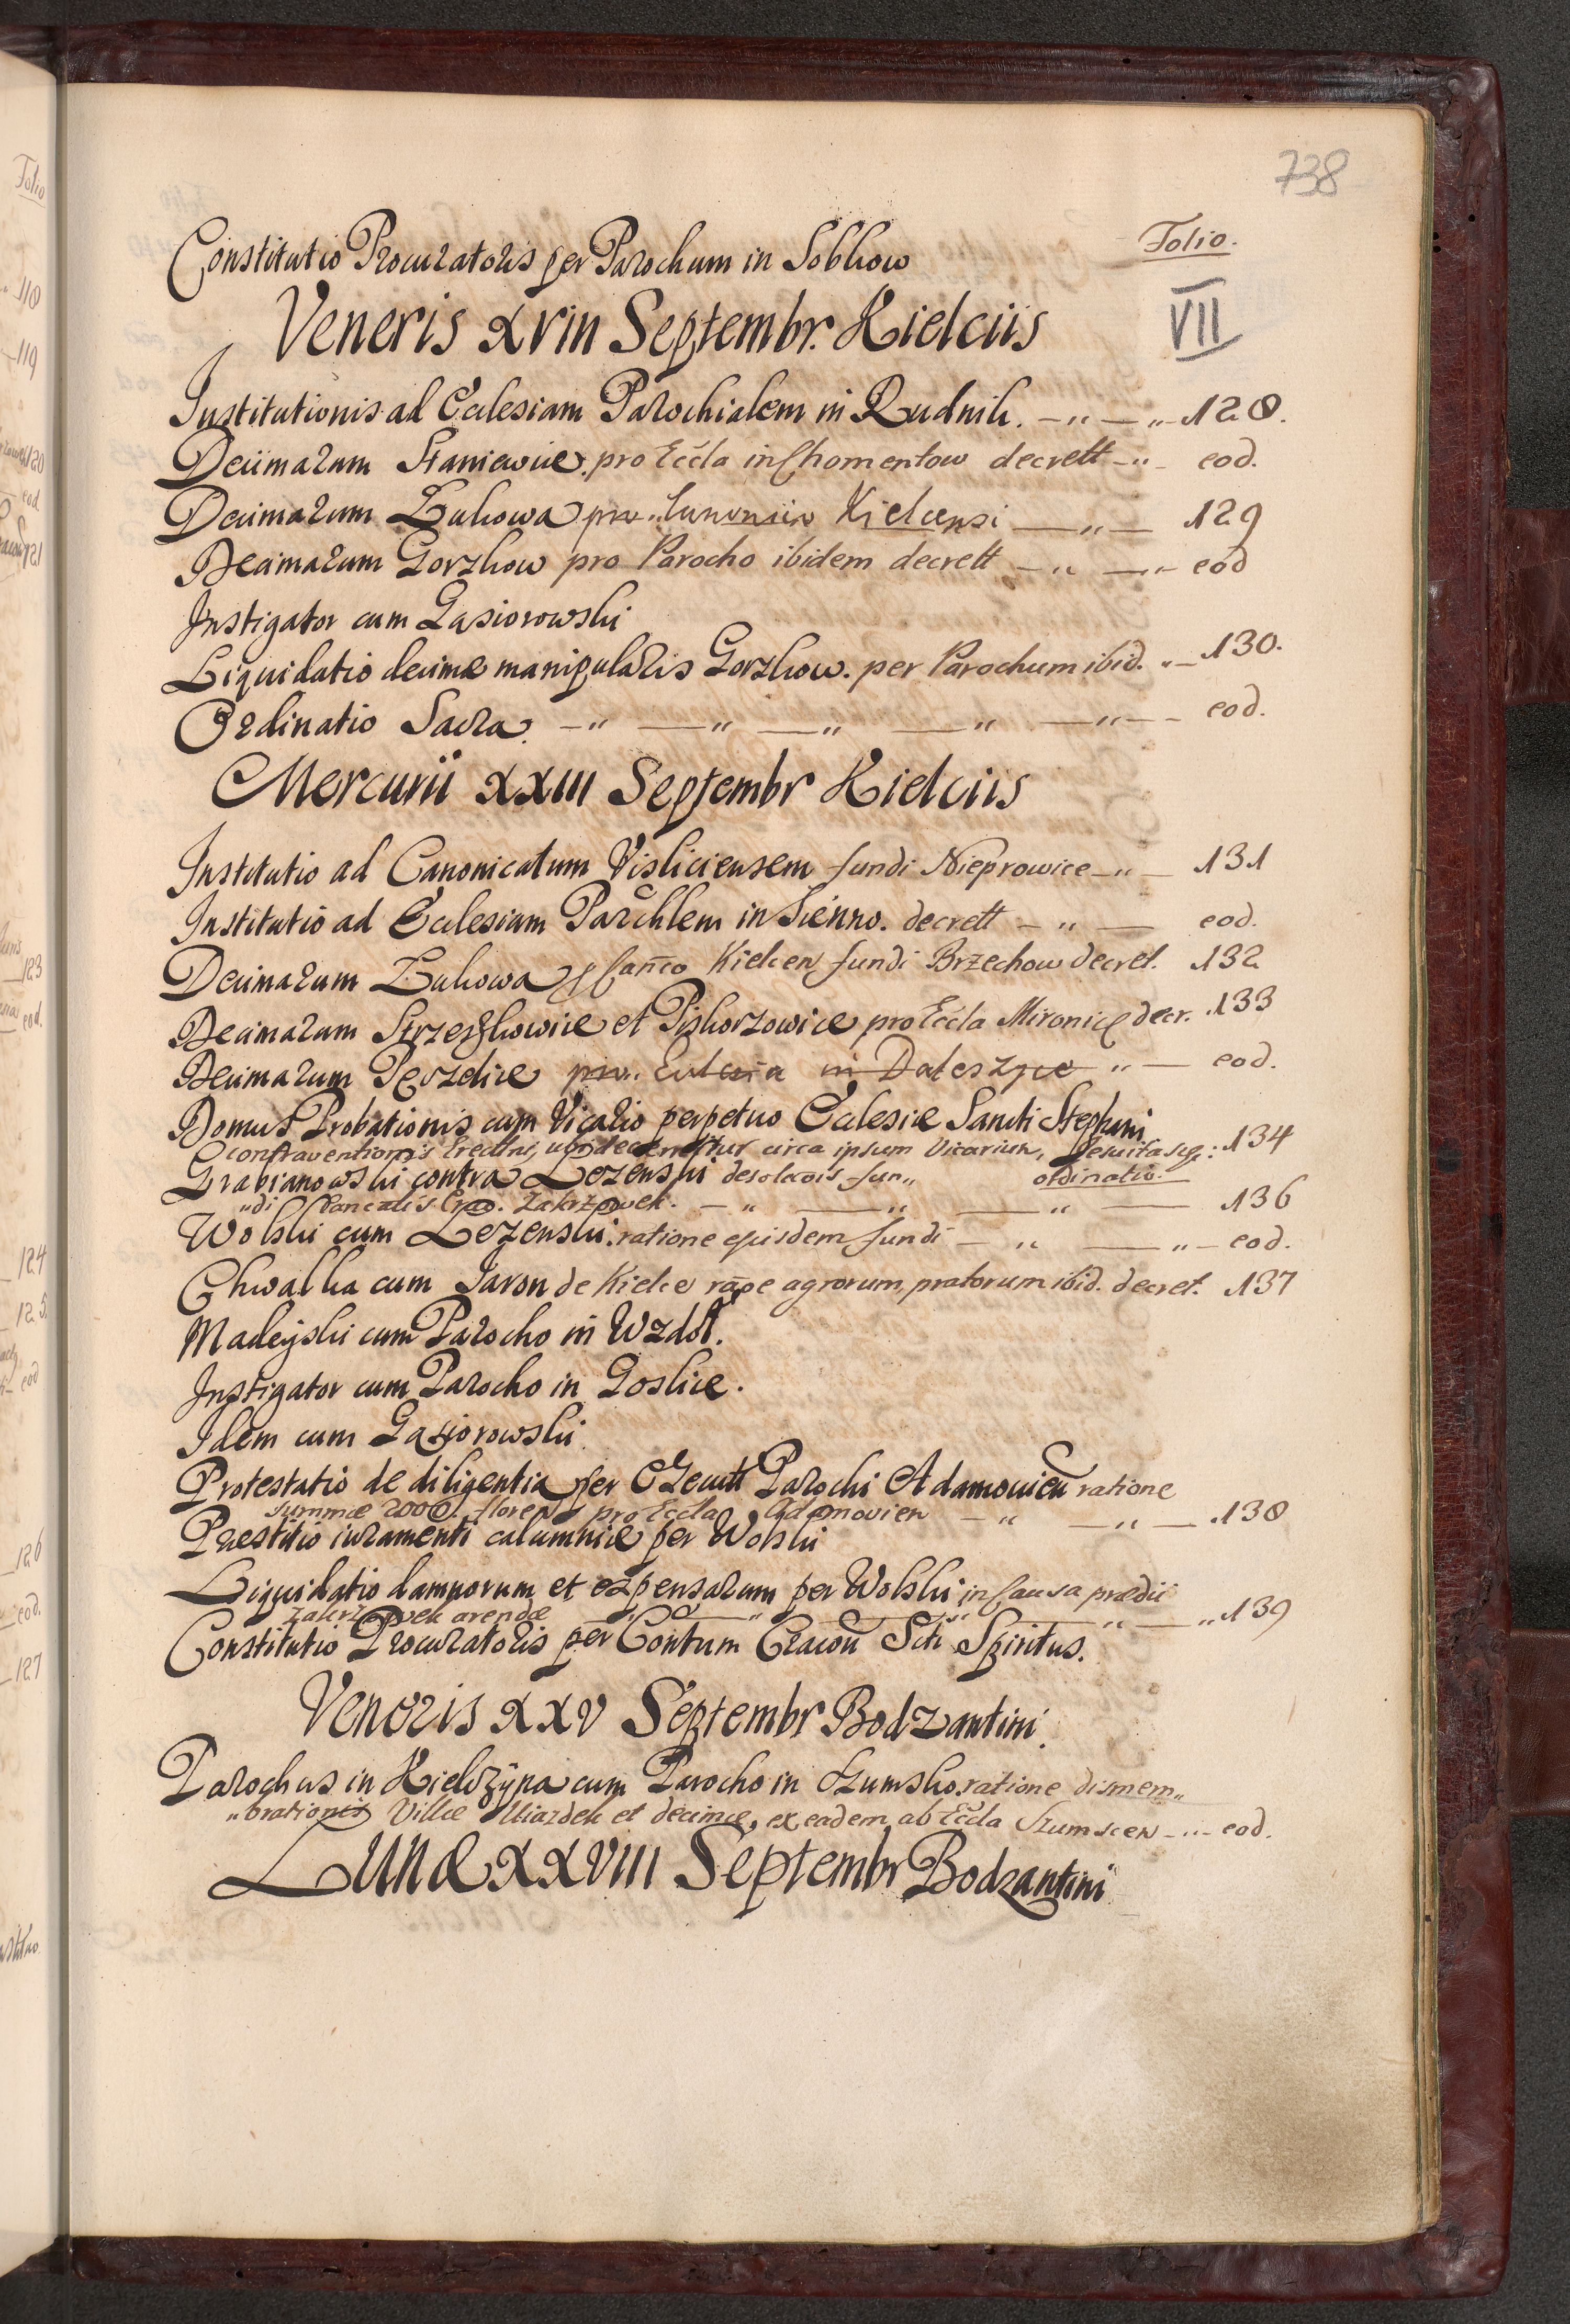 738
Folio.
Constitutio Procuratoris per Parochum in Sobkow
VII
Veneris XVIII Septembr. Kielciis
Institutionis ad Ecclesiam Parochialem in Rudnik. 128.
Decimarum Staniewice pro Eccla in Chomentow decrett eod.
Decimarum Lukowa Kielcensi 129
Decimarum Gorzkow pro Parocho ibidem decrett eod
Instigator cum Gasiorowski
Liquidatio decimæ manipularis Gorzkow. per Parochum ibid. 130.
Ordinatio Sacra eod.
Mercurii XXIII Septembr Kielciis
Institutio ad Canonicatum Visliciensem fundi Nieprowice 131
Institutio ad Ecclesiam Parchlem in Sienno. decrett eod.
Decimarum Lukowa Canco Kielcen fundi Brzechow decret. 132
Decimarum et Piskorzowice pro Eccla Mironice decr. 133
Decimarum in Daleszyce eod.
Domus Probationis cum Vicario perpetuo Ecclesiæ Sancti Stephani
contraventionis circa ipsum Vicarium, 134
Grabianowski contra Lezenski desolaois fun„
ordinatio
„di Zakrzowek. 136
Wolski cum Lezenski: ratione ejusdem fundi eod.
Chwalka cum Jaron de Kielce raõe agrorum, pratorum ibid. decret. 137
Madeyski cum Parocho in Wzdół.
Instigator cum Parocho in Goslice.
Idem cum Gasiorowski
Protestatio de diligentia per Parochi Adamovien ratione
summæ 2000. floren pro Eccla Adamovien 138
Præstitio iuramenti calumniæ per Wolski
Liquidatio damnorum et expensarum per Wolski in Causa prædii
Zakrzowek arendæ 139
Constitutio Procuratoris per Contum Cracou Scti Spiritus.
Veneris XXV Septembr Bodzantini.
Parochus in Kielczyna cum Parocho in Szumsko. ratione dismem„
„brationis Villæ et decimæ, ex eadem ab Eccla Szumscen eod.
Lunæ XXVIII Septembr Bodzantini